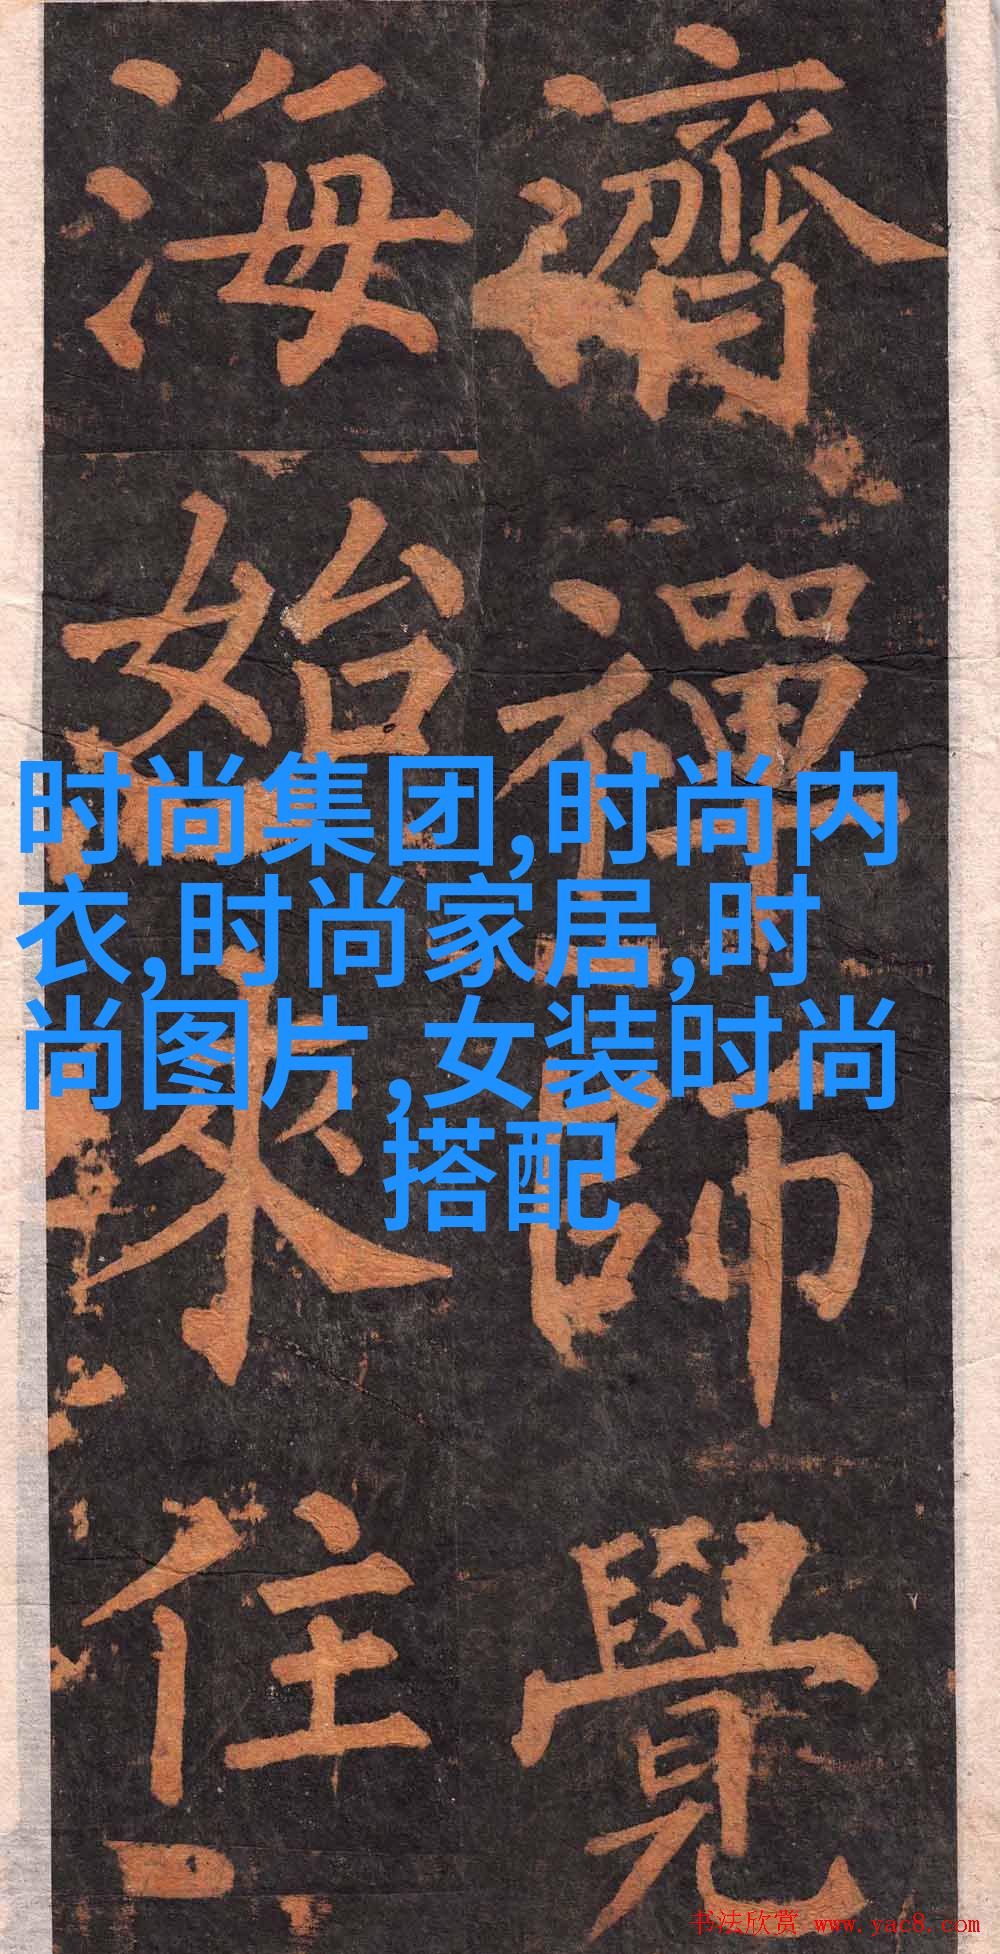 濟禪師覺
海始來住
时尚集团,时尚内
衣,时尚家居,时
尚图片,女装时尚
搭配
书法欣赏 www.yac8.com